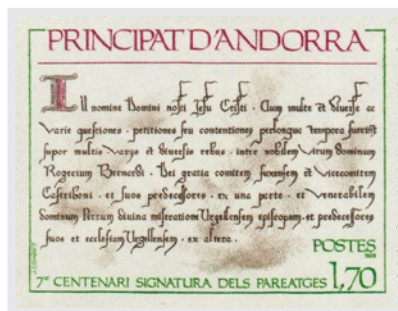 PRINCIPAT D'ANDORRA
In nomine Domini nostri Jesu Cristi · Cum multe et diverse ac
varie questiones · petitiones seu contentiones perlongue tempora fuerint
super multis varys et diversis rebus · inter nobilem virum dominum
Rogerium Bernardi · Dei gratia comitem fuxensem et vicecomitem
Castriboni · et suos predecessores · ex una parte · et venerabilem
dominum Petrum divina miseratione Urgellensem episcopum · et predecessores
suos et ecclesiam Urgellensem · ex altera ·
POSTES
1978
1,70
7è CENTENARI SIGNATURA DELS PAREATGES